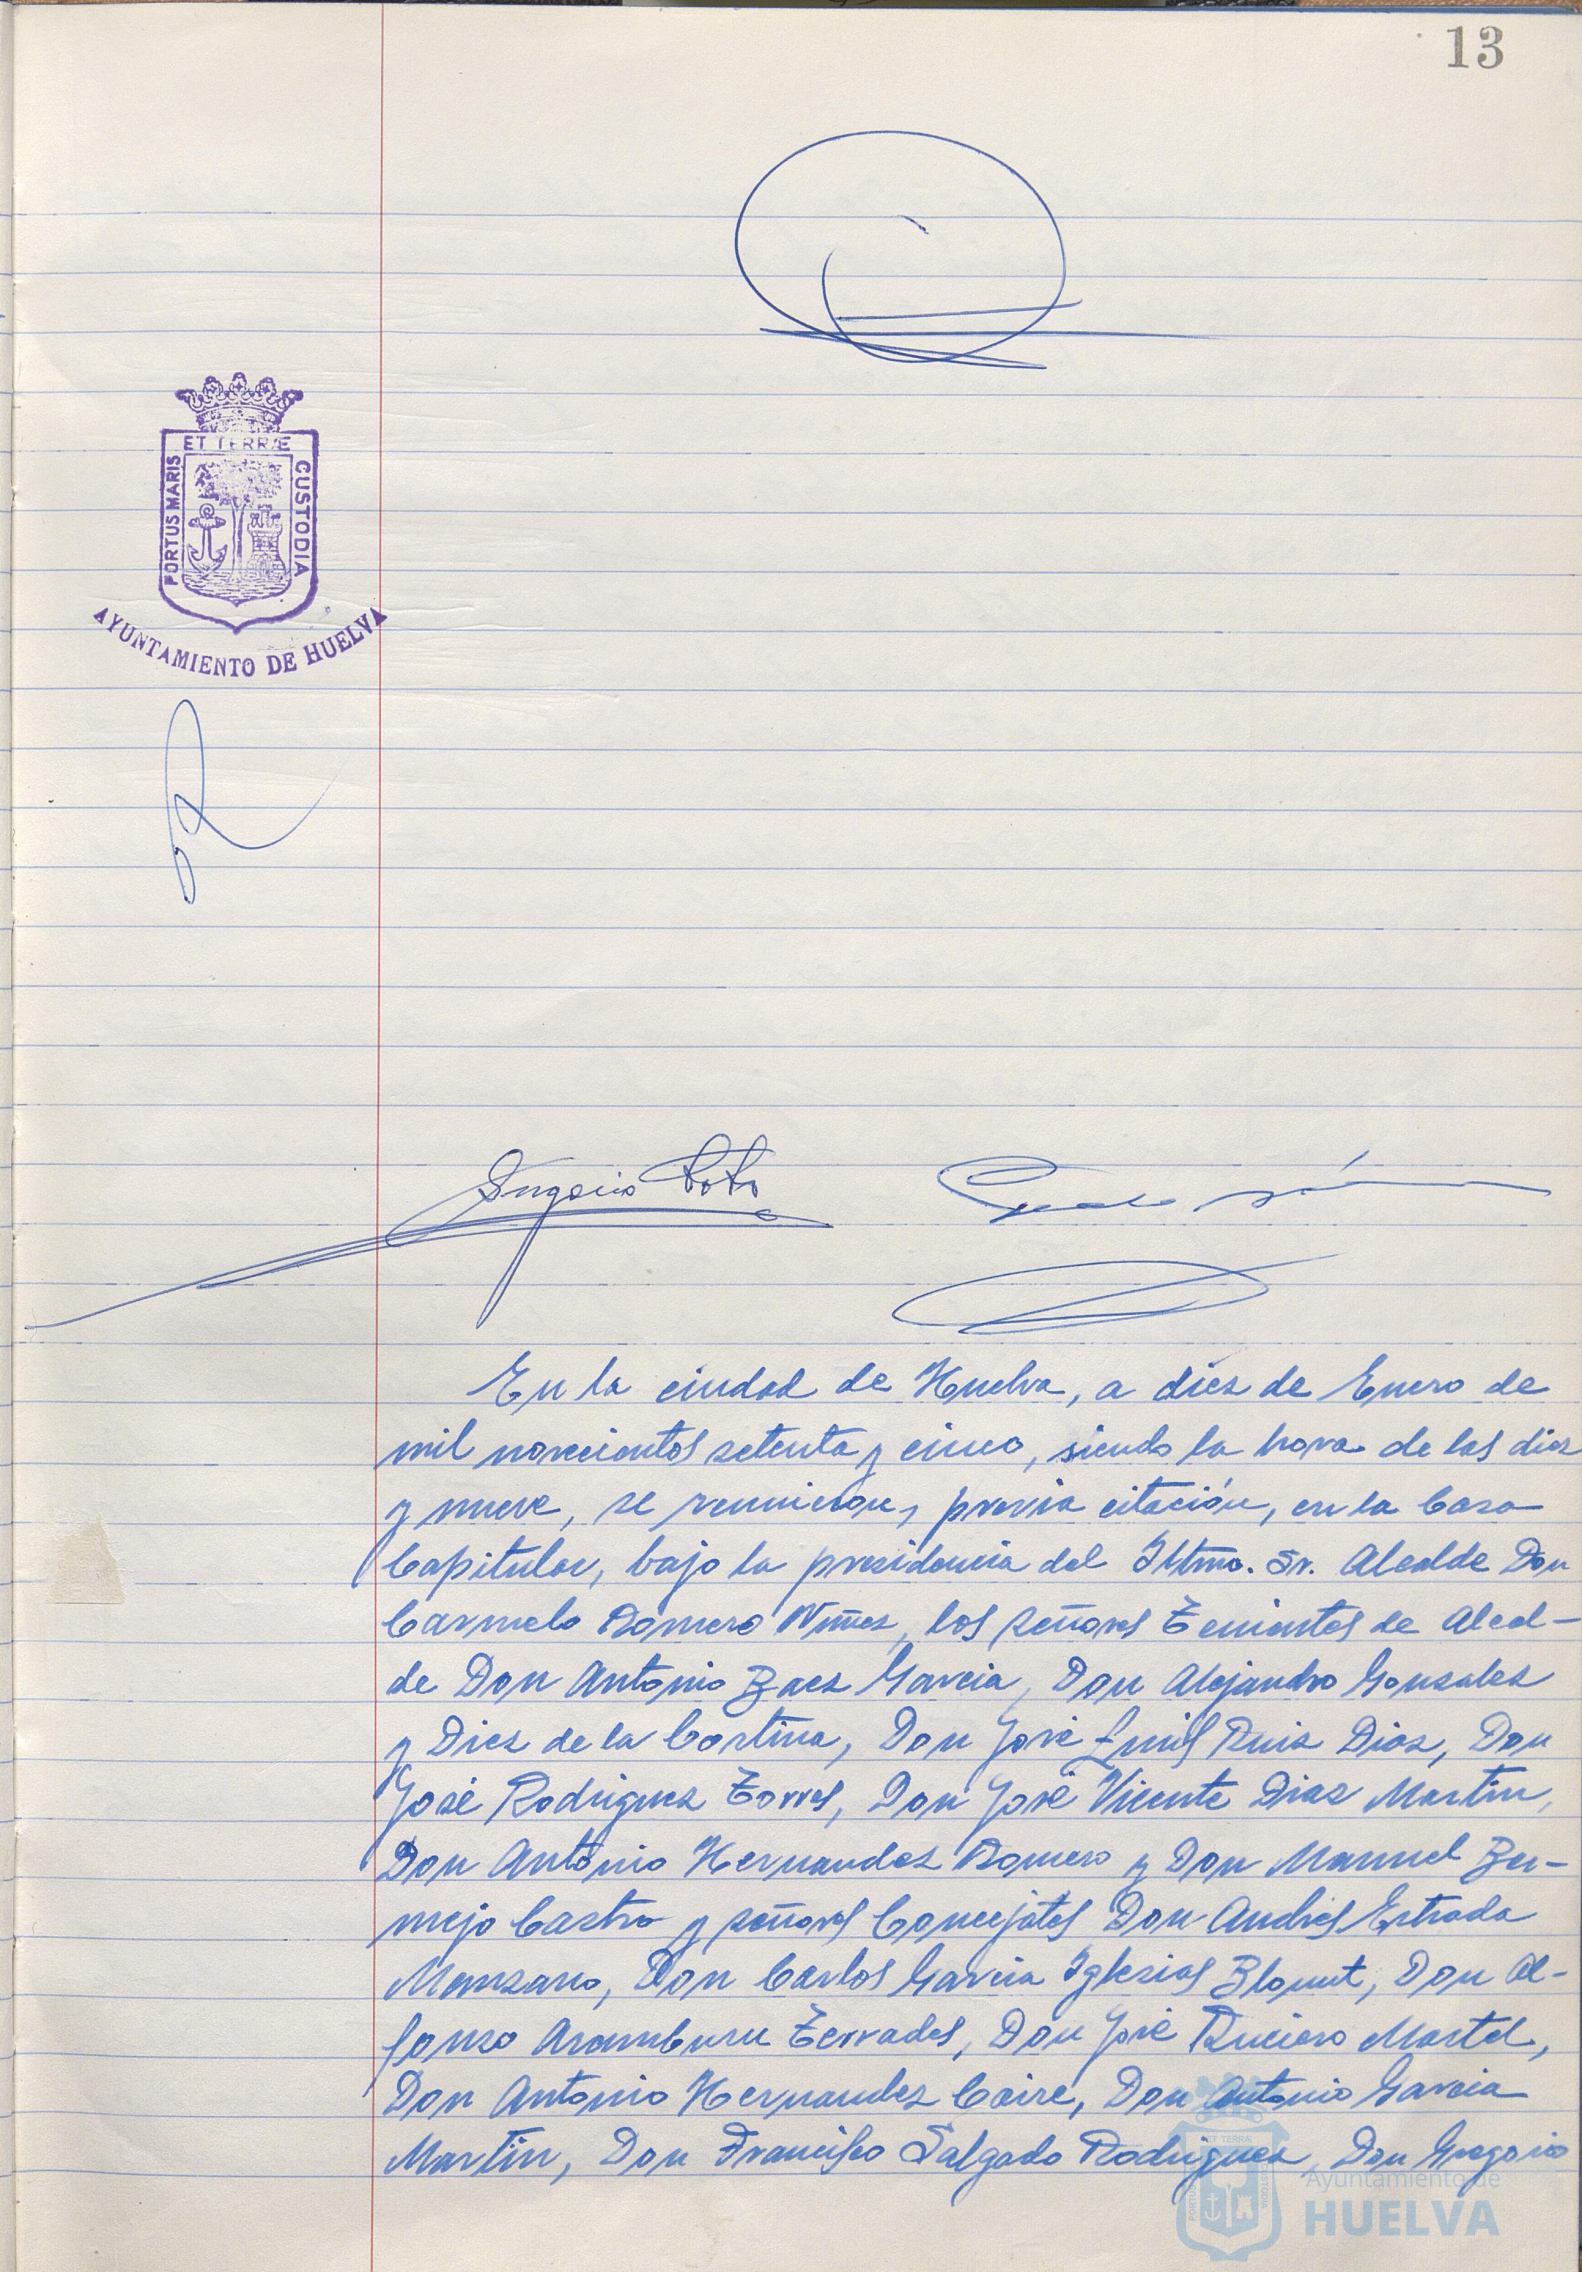 13
ET TERRÆ
PORTUS MARIS
CUSTODIA
AYUNTAMIENTO DE HUELVA
En la ciudad de Huelva, a diez de Enero de
mil novecientos setenta y cinco, siendo la hora de las diez
y nueve, se reunieron, previa citación, en la Casa
Capitular, bajo la presidencia del Iltmo. Sr. Alcalde Don
Carmelo Romero Núñez, los señores Tenientes de Alcal-
de Don Antonio Baez Garcia, Don Alejandro Gonzalez
y Diez de la Cortina, Don José Luis Ruiz Diaz, Don
José Rodriguez Torres, Don José Vicente Diaz Martin,
Don Antonio Hernandez Romero y Don Manuel Ber-
mejo Castro y señores Concejales Don Andrés Estrada
Manzano, Don Carlos Garcia Iglesias Blount, Don Al-
fonso Aramburu Terrades, Don José Martel,
Don Antonio Hernandez Caire, Don Antonio Garcia
Martin, Don Francisco Salgado Rodriguez, Don Gregorio
Ayuntamiento de
HUELVA